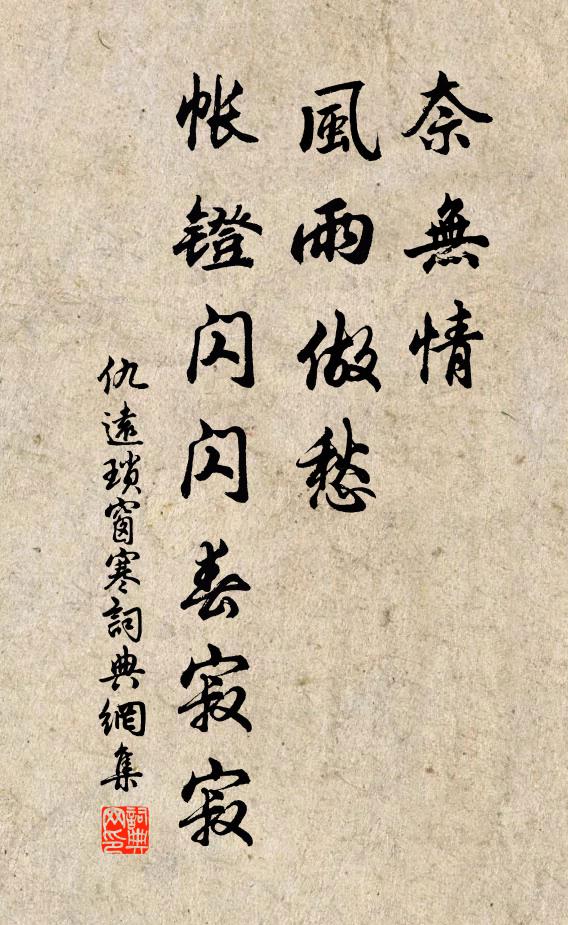 奈無情
風雨做愁
帳鐙閃閃春寂寂
仇遠瑣窗寒詞典網集
詞典网印